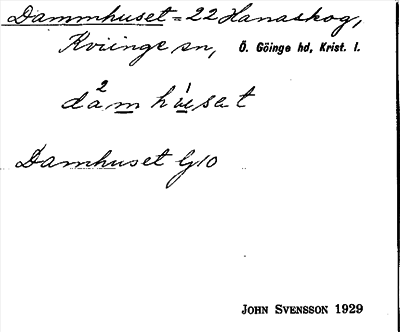 Dammhuset = 22 Hanaskog,
Kviinge sn, Ö. Göinge hd, Krist. l.
da²m hu¹set
Damhuset Gj10
JOHN SVENSSON 1929